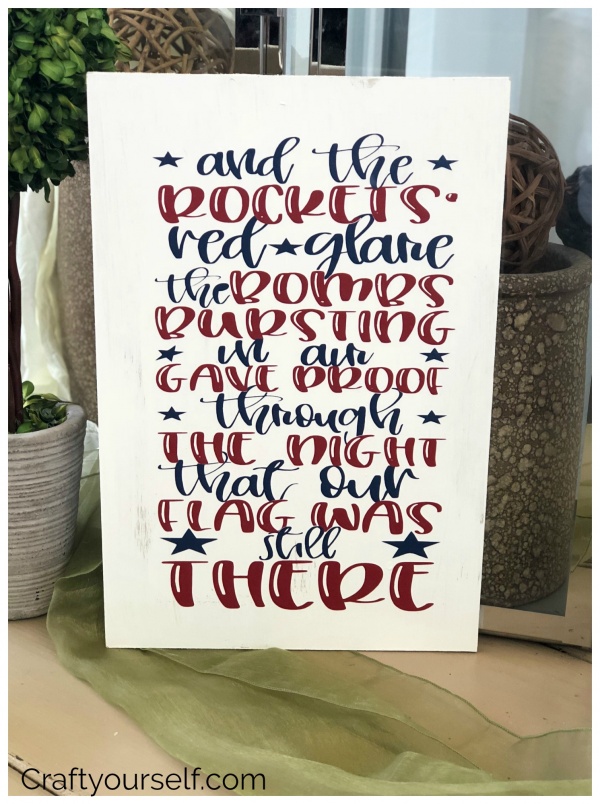 and the
ROCKETS'
red glare
the BOMBS
BURSTING
in air
GAVE PROOF
through
THE NIGHT
that our
FLAG WAS
still
THERE
Craftyourself.com